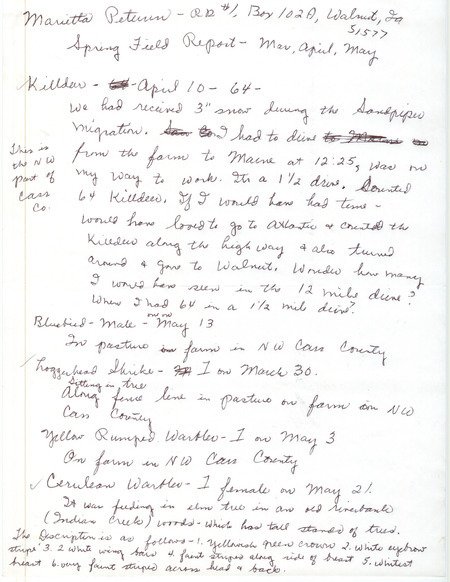 Marietta Petersen - RR #1, Box 102A, Walnut, Ia
51577
Spring Field Report - Mar, April, May
Killdeer - April 10 - 64 -
We had received 3" snow during the Sandpiper
migration. I had to drive
from the farm to Marne at 12:25, was on
my way to work. Its a 1 1/2 drive. Counted
64 Killdeer. If I would have had time -
would have loved to go to Atlantic & counted the
Killdeer along the highway & also turned
around & gone to Walnut. Wonder how many
I would have seen in the 12 mile drive?
When I had 64 in a 1 1/2 mile drive?
This is
the NW
part of
Cass
Co.
Bluebird - Male - on May 13
In pasture on farm in NW Cass County
✓ Loggerhead Shrike - 1 on March 30.
Sitting in tree
Along fence line in pasture on farm in NW
Cass County
Yellow Rumped Warbler - 1 on May 3
On farm in NW Cass County
✓ Cerulean Warbler - 1 female on May 21.
It was feeding in elm tree in an old riverbank
(Indian Creek) woods - which has tall stands of trees.
The Description is as follows - 1. Yellowish green crown 2. White eyebrow
stripe 3. 2 white wing bars 4. faint stripes along side of breast 5. Whitest
breast 6. very faint striped across head & back.